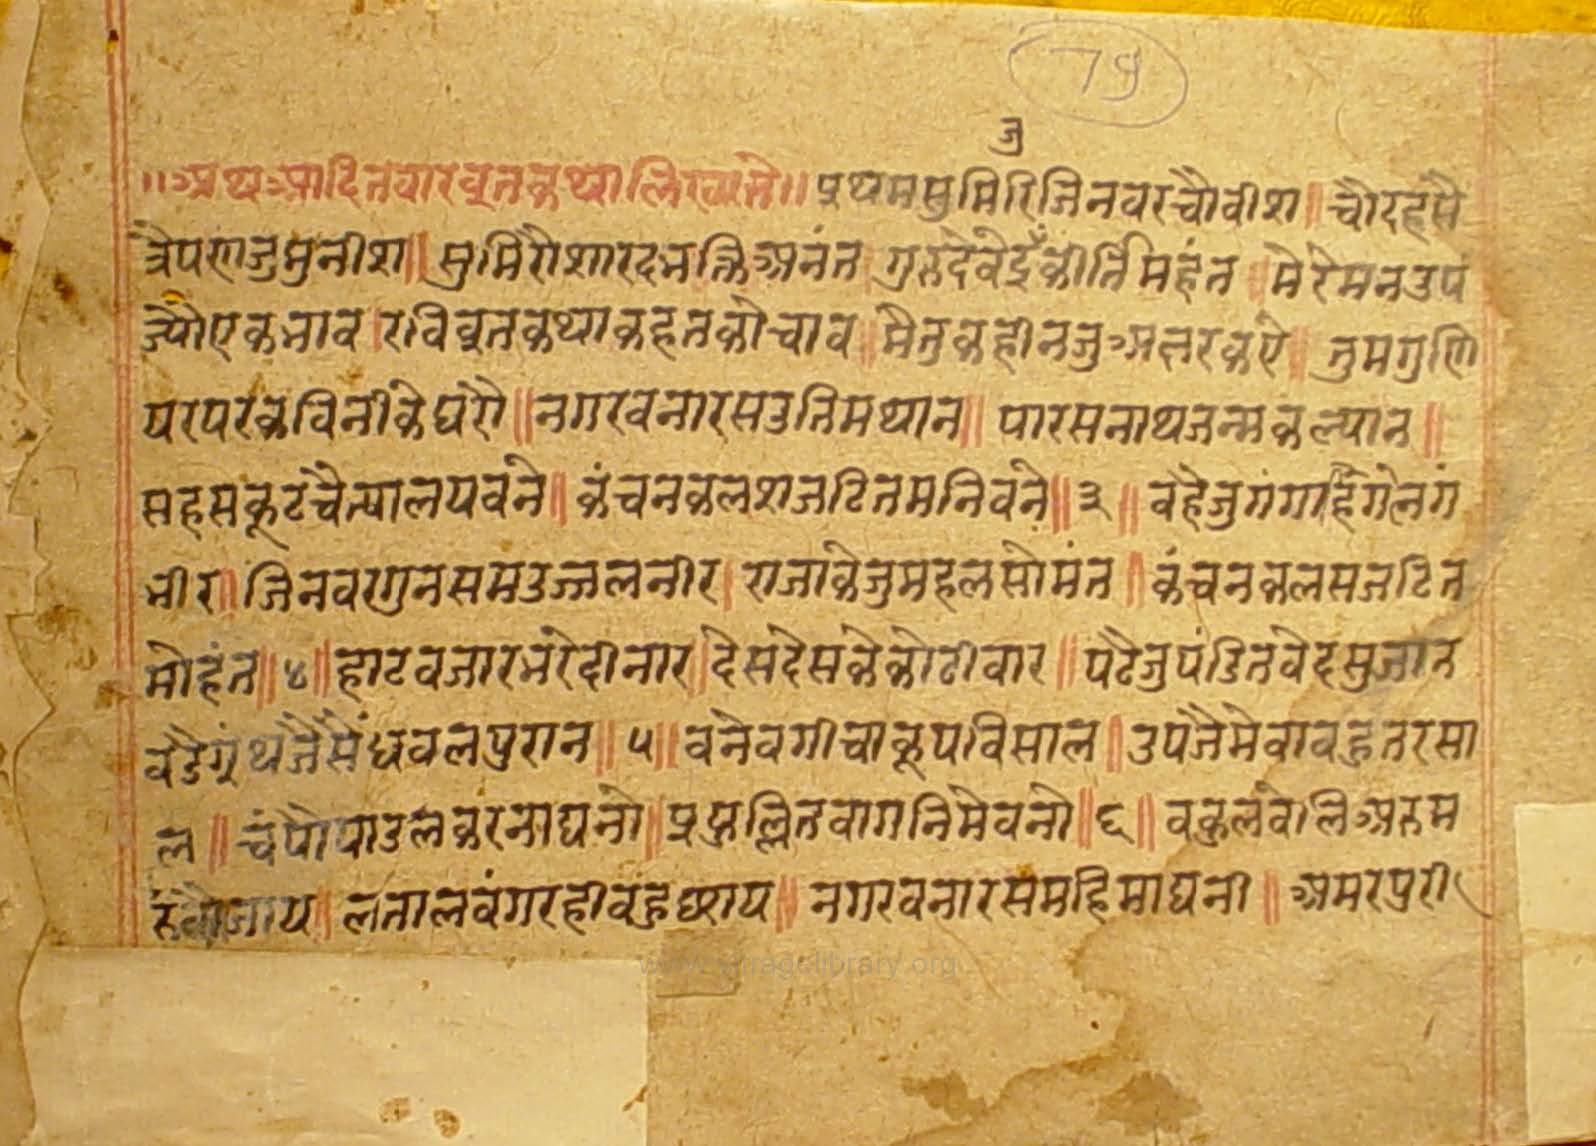 79
जु
॥अथआदितवारव्रतकथालिख्यते॥ प्रथमसुमिरिजिनवरचौवीश॥ चौदहसै
त्रैपणजुमुनीश॥ सुमिरौशारदभक्तिअनंत गुरुदेवेंद्रकीर्तिमहंत ॥ मेरेमनउप
ज्यौएकभाव।रविव्रतकथाकहनकोचाव॥मैतुकहीनजुअक्षरकरौ॥ तुमगुणि
यरपरकविनीकेधरौ॥नगरवनारसउतिमथान॥ पारसनाथजन्मकल्यान॥
सहसकूटचैत्यालयवने॥ कंचनकलशजटितमनिवने॥३॥ वहैजुगंगागं
भीर॥ जिनवरगुनसमउज्जलनीर। राजाकेजुमहलसोभंत ॥ कंचनकलसजटित
मोहंत॥४॥हाटवजारभरेदीनार।देसदेसकेकोठीवार॥ पढैजुपंडितवेदसुजान
वडेग्रंथजैसैंधवलपुरान॥५॥वनेवगीचाकूपविसाल॥उपजैमेवावहुतरसा
ल॥ चंपौपाउलकरनाघनो॥प्रफुल्लितवागनिमेवनो॥६॥ वकुलवेलिअरुम
जाय। लतालवंगरहीवहुछाय॥ नगरवनारसमहिमाघनी॥ अमरपुरी
www.virragelibrary.org